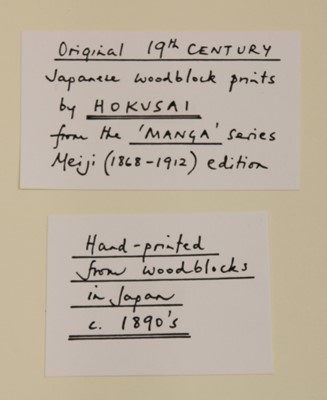 Original 19th CENTURY
Japanese woodblock prints
by HOKUSAI
from the 'MANGA' series
Meiji (1868-1912) edition
Hand-printed
from woodblocks
in Japan
c. 1890's